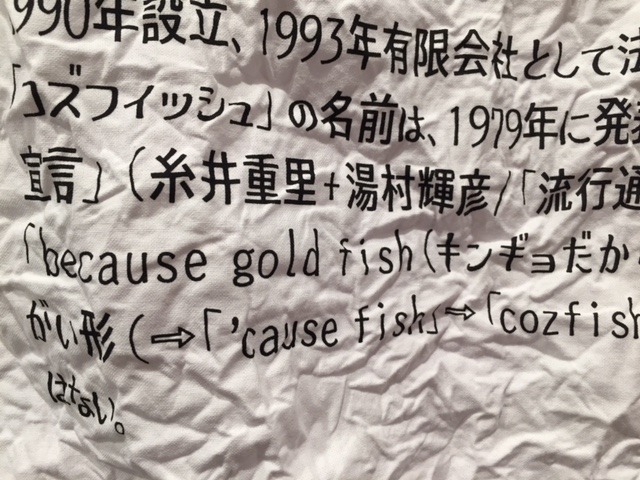 990年設立、1993年有限会社として法
「コズフィッシュ」の名前は、1979年に発表
宣言」(糸井重里+湯村輝彦/「流行通
「because gold fish(キンギョだか
がい形(⇒「'cause fish」⇒「cozfish
はない。